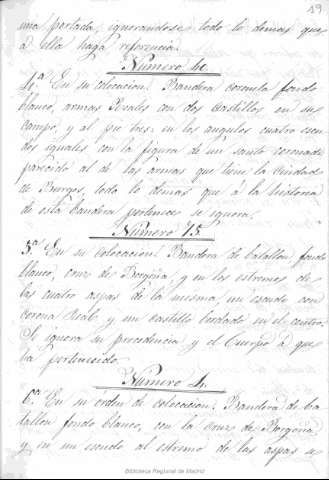 19
una portada, ignorandose todo lo demas que
á ella haga referencia.
Numero 40.
4.ª En su colocacion. Bandera coronela fondo
blanco, armas Reales con dos Castillos en su
campo, y al pie tres: en los angulos cuatro escu
dos iguales con la figura de un santo coronado
parecido al de las armas que tiene la Ciudad
de Burgos, todo lo demas que á la historia
de esta bandera pertenece se ignora.
Numero 15.
5.ª En su colocacion. Bandera de batallon fondo
blanco, cruz de Borgoña, y en los estremos de
las cuatro aspas de la misma, un escudo con
corona Real y un Castillo bordado en el centro.
Se ignora su procedencia y el Cuerpo á que
ha pertenecido.
Numero 4.
6.ª En su orden de colocacion. Bandera de ba
tallon fondo blanco, con la Cruz de Borgoña
y en un escudo al estremo de las aspas se
Biblioteca Regional de Madrid